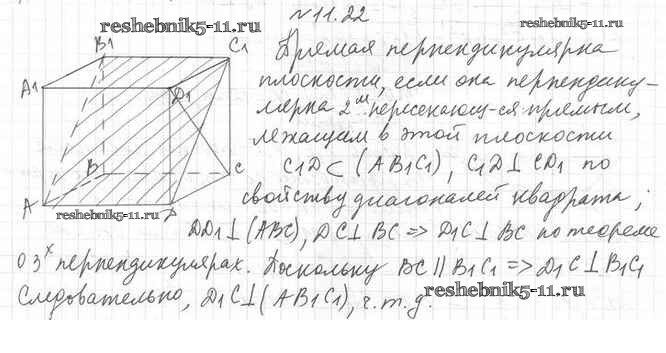 №11.22
reshebnik5-11.ru
B1
C1
A1
D1
B
C
A
D
reshebnik5-11.ru
Прямая перпендикулярна
плоскости, если она перпендику-
лярна 2м пересекающ-ся прямым,
лежащим в этой плоскости
C1D ⊂ (AB1C1), C1D ⊥ CD1 по
свойству диагоналей квадрата;
DD1 ⊥ (ABC), DC ⊥ BC => D1C ⊥ BC по теореме
о 3х перпендикулярах. Поскольку BC || B1C1 => D1C ⊥ B1C1
Следовательно, D1C ⊥ (AB1C1), ч.т.д.
reshebnik5-11.ru